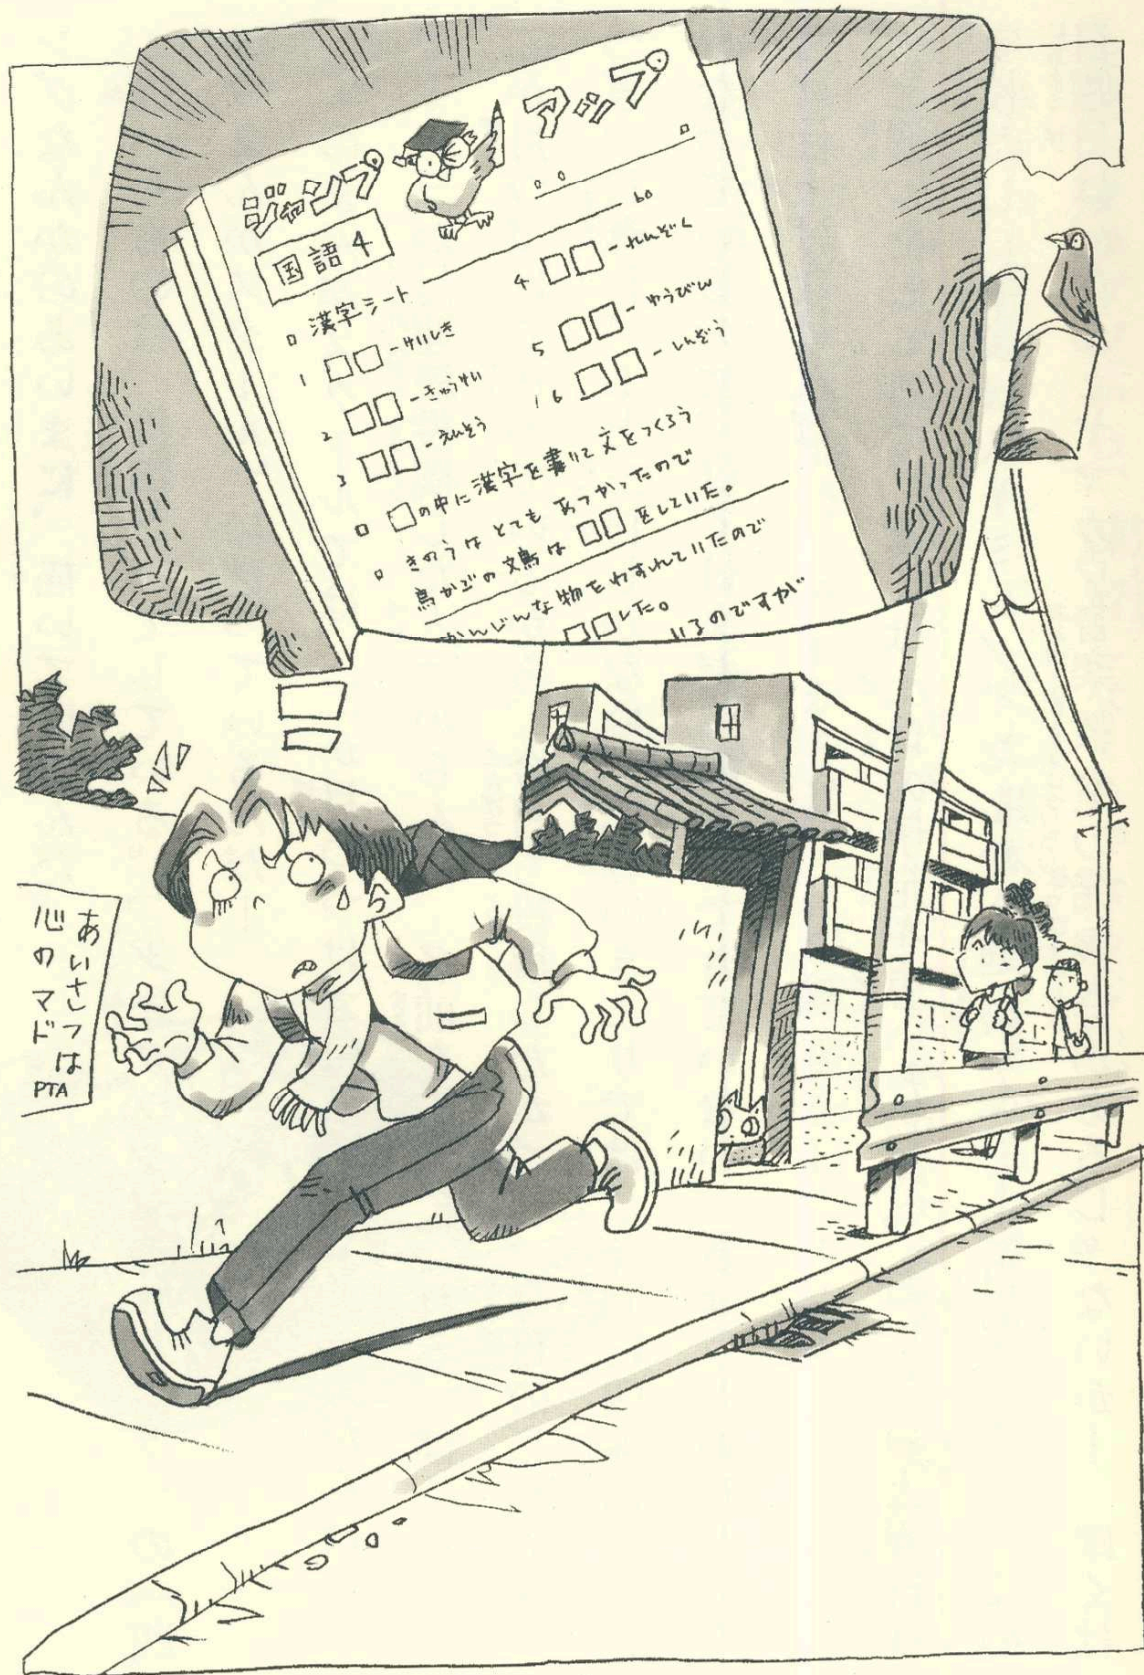 ジャンプ アップ
国語4
60
漢字シート
1 □□-けいしき
2 □□-きゅうけい
3 □□-えんそう
4 □□-れんぞく
5 □□-ゆうびん
16 □□-しんぞう
□の中に漢字を書いて文をつくろう
きのうは とても あつかったので
鳥かごの文鳥は □□ をしていた。
かんじんな物をわすれていたので
□□した。
いるのですが
あいさつは
心のマド
PTA